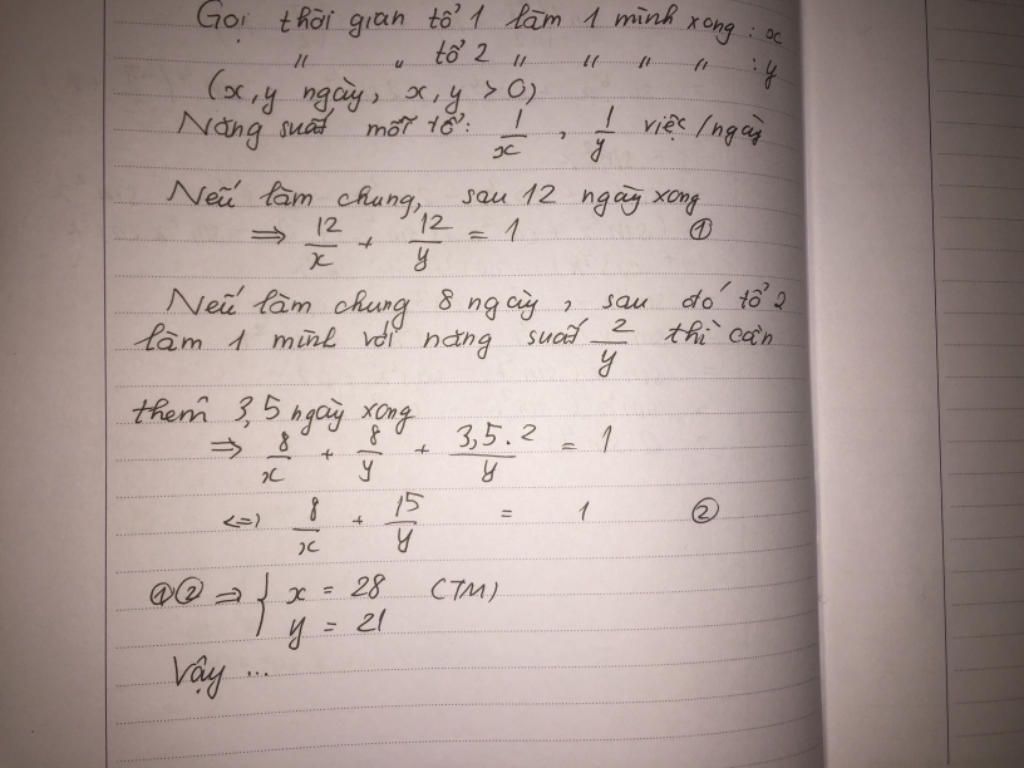 Gọi thời gian tổ 1 làm 1 mình xong : x
" " tổ 2 " " " " : y
(x, y ngày, x, y > 0)
Năng suất mỗi tổ: 1/x , 1/y việc/ngày
Nếu làm chung, sau 12 ngày xong
⇒ 12/x + 12/y = 1 ①
Nếu làm chung 8 ngày, sau đó tổ 2
làm 1 mình với năng suất 2/y thì cần
thêm 3,5 ngày xong
⇒ 8/x + 8/y + 3,5.2/y = 1
<=> 8/x + 15/y = 1 ②
①② ⇒ { x = 28 (TM)
y = 21
Vậy ...